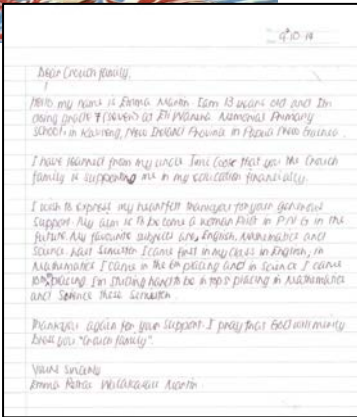 9-10-14
Dear Crouch family,
Hello my name is Emma Martin. I am 13 years old and Im
doing grade 7 (seven) at Eli Memorial Primary
school, in Kavieng, New Ireland Province in Papua New Guinea.
I have learned from my uncle Jim that you the Crouch
family is supporting me in my education financially.
I wish to express my heartfelt thankyou for your generous
support. My aim is to become a woman Pilot in PNG in the
future. My favourite subjects are, English, Mathematics and
Science. Last Semester I came first in my class in English, in
Mathematics I came in the 6th placing and in science I came
10th placing. Im studing hard to be in top 5 placing in Mathematics
and Science these Semester.
Thankyou again for your support. I pray that God will
bless you "Crouch family".
Yours Sincerely
Emma Martin